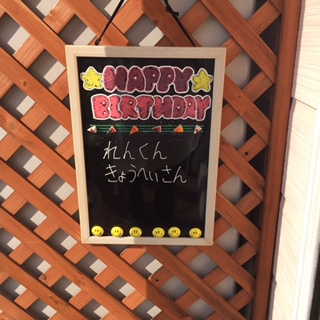 HAPPY
BIRTHDAY
れんくん
きょうへいさん